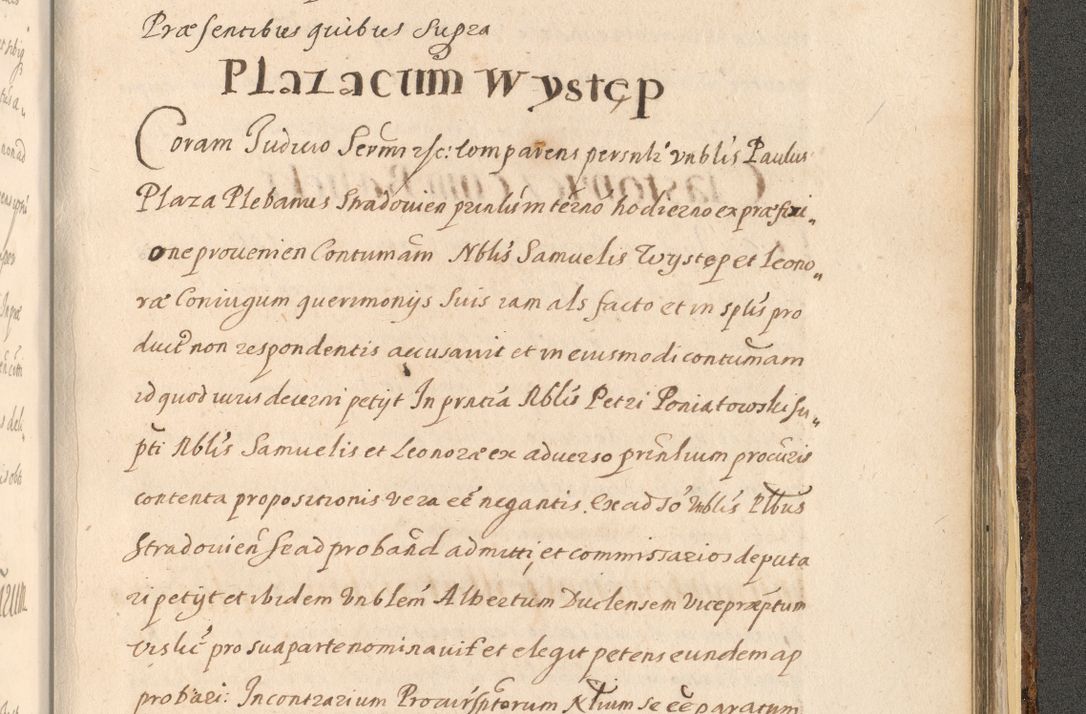 Præsentibus quibus supra
Plaza cum Występ
Coram Judicio Sermi &c: comparens persnlr Vnblis Paulus
Plaza Plebanus Stradouien prnlis in termo hodierno ex præfixi„
one prouenien Contumam Nblis Samuelis Występ et Leono„
ræ Coniugum querimonijs suis iam als facto et in splis pro
duct non respondentis accusauit et in eiusmodi contumam
id quod iuris decerni petijt In prntia Nblis Petri Poniatowski su„
pti Nblis Samuelis et Leonoræ ex aduerso prinlium procuris
contenta propositionis vera eē negantis. Ex ad so Vnblis Plbus
Stradouien se ad proband admitti, et commissarios deputa
ri petijt et ibidem Vnblem Albertum Duclensem Vicepræptum
Vislic pro sua parte nominauit et elegit petens eundem ap
probari: In contrarium Procur sptorum Ktium se eē paratum